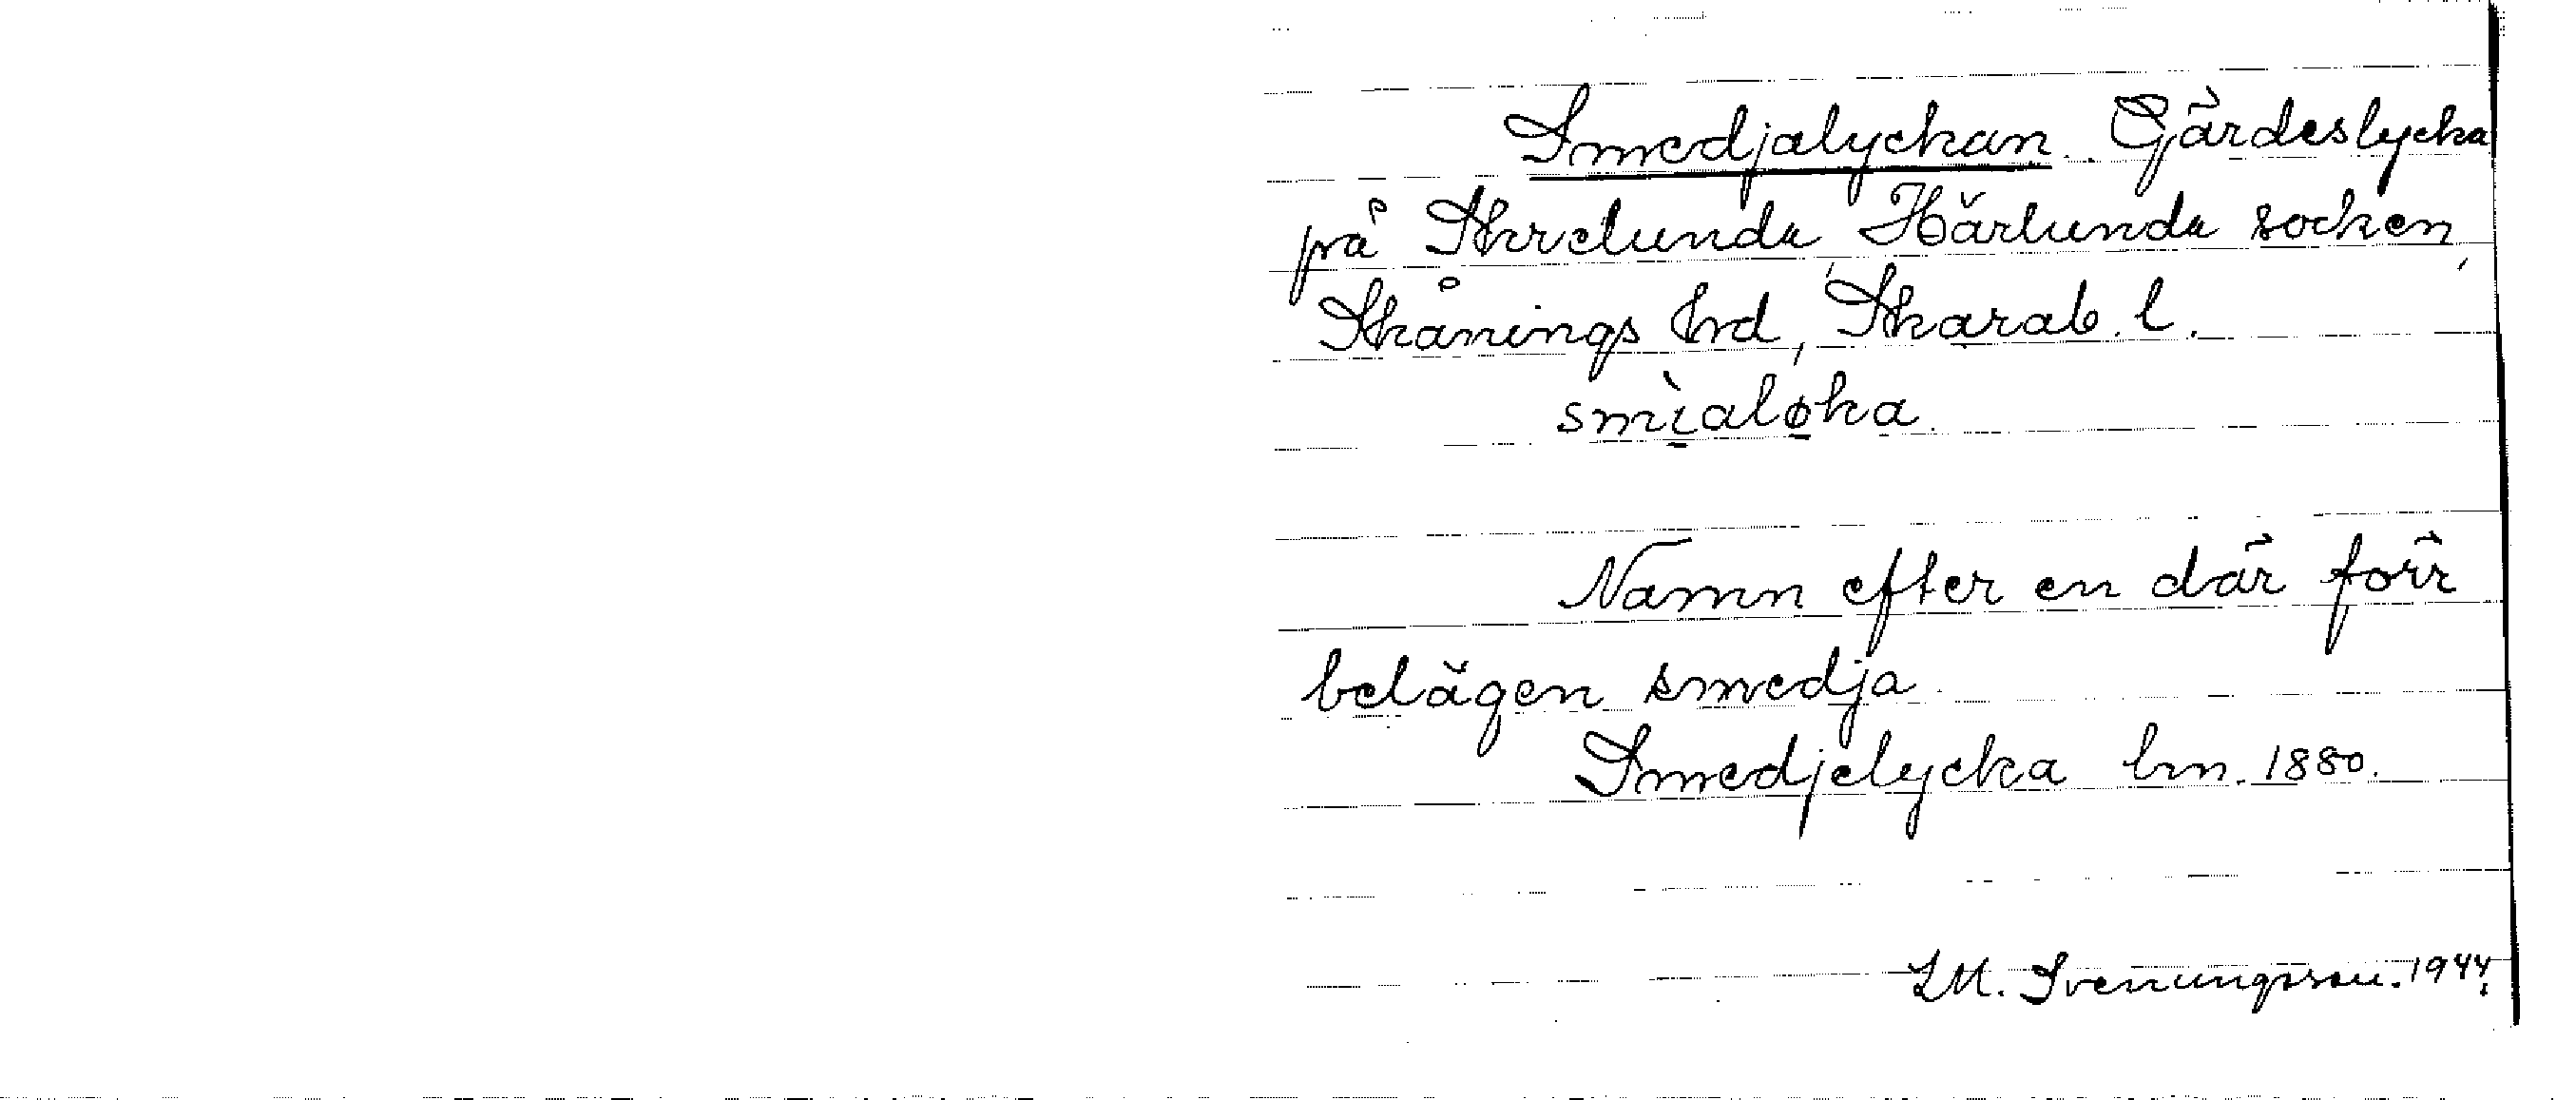 Smedjalyckan. Gärdeslycka
på Skrelunda, Härlunda socken,
Skånings hrd, Skarab. l.
smìaløka.
Namn efter en där förr
belägen smedja.
Smedjelycka lm. 1880.
S.M. Svenungsson. 1944.